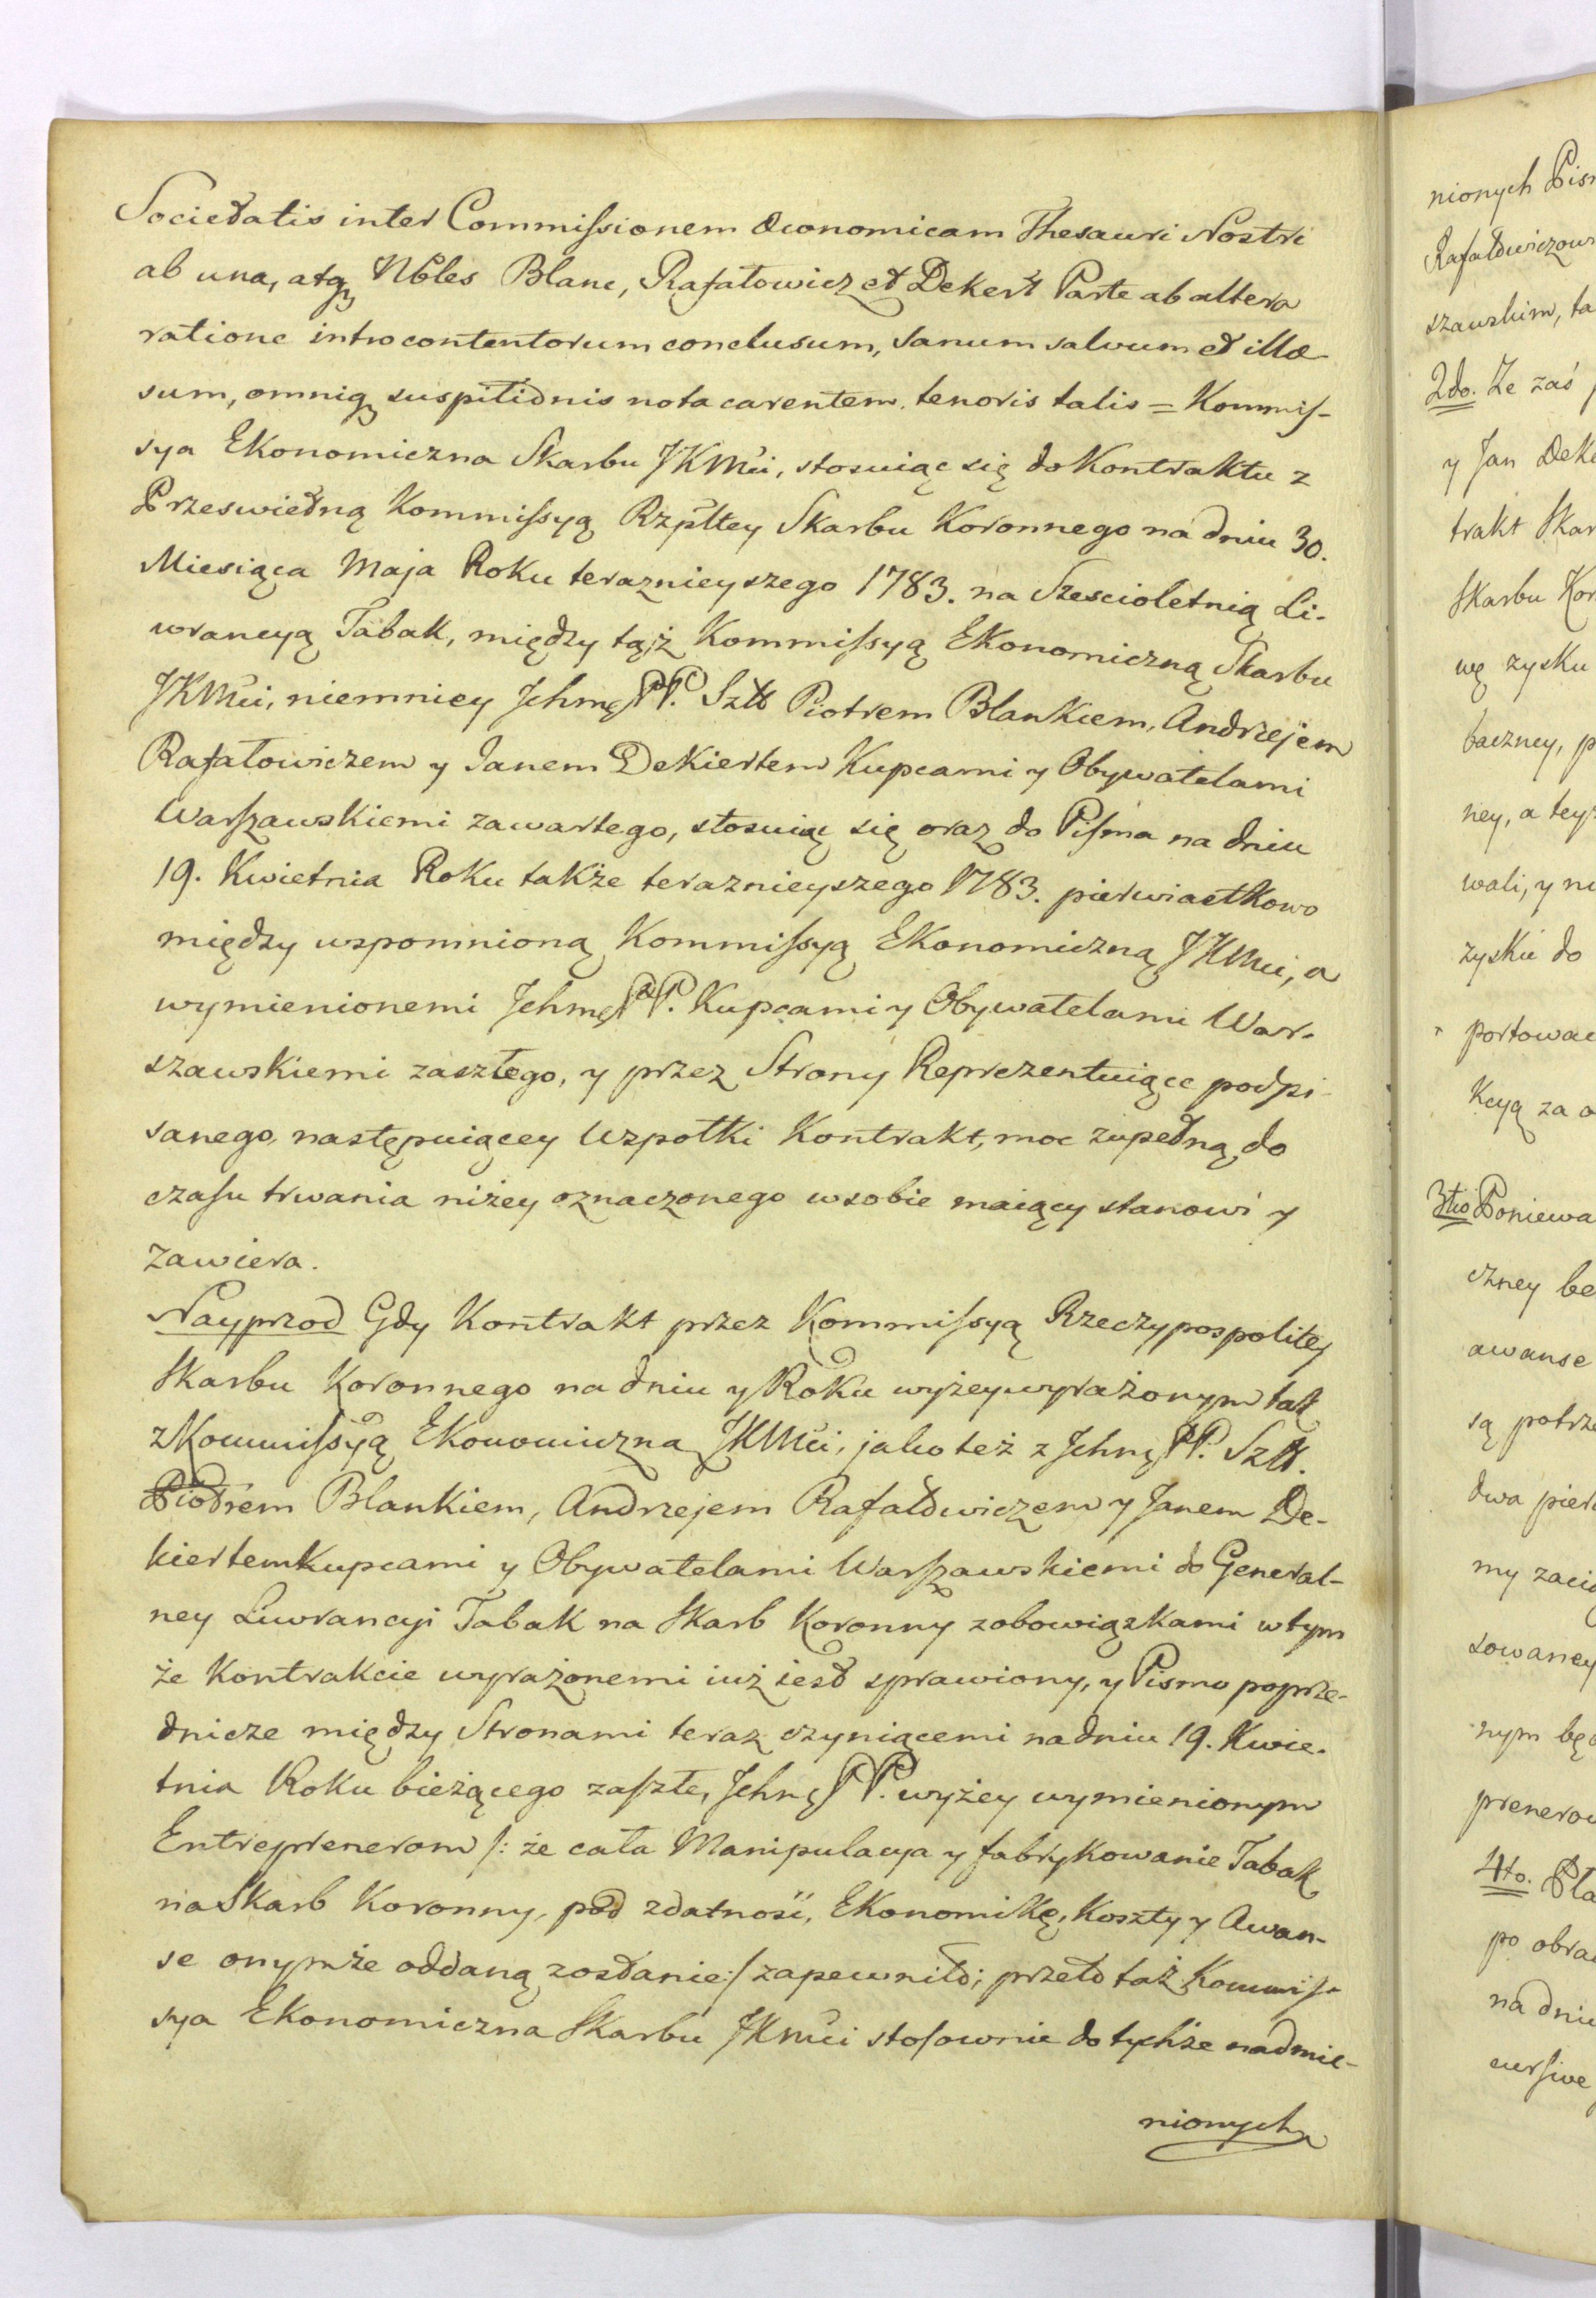 Societatis inter Commissionem Œconomicam Thesauri Nostri
ab una, atq; Nbles Blanc, Rafałowicz et Dekert Parte ab altera
ratione introcontentorum conclusum, sanum salvum et illæ-
sum, omniq; suspitionis nota carentem, tenoris talis = Kommis-
sya Ekonomiczna Skarbu JKMci, stosuiąc się do Kontraktu z
Przeswietną Kommissyą Rzpltey Skarbu Koronnego na dniu 30.
Miesiąca Maja Roku teraznieyszego 1783. na Szescioletnią Li-
wrancyą Tabak, między tąż Kommissyą Ekonomiczną Skarbu
JKMci, niemniey Jchmę PP. Szlt Piotrem Blankiem, Andrzejem
Rafałowiczem y Janem Dekiertem Kupcami y Obywatelami
Warszawskiemi zawartego, stosuiąc się oraz do Pisma na dniu
19. Kwietnia Roku także teraznieyszego 1783. pierwiastkowo
między wspomnioną Kommissyą Ekonomiczną JKMci, a
wymienionemi Jchmę PP. Kupcami y Obywatelami War-
szawskiemi zaszłego, y przez Strony Reprezentuiące podpi-
sanego, następuiącey Wspołki Kontrakt, moc zupełną do
czasu trwania niżey oznaczonego w sobie maiący stanowi y
zawiera.
Nayprzod Gdy Kontrakt przez Kommissyą Rzeczypospolitey
Skarbu Koronnego na dniu y Roku wyżey wyrażonym tak
z Kommissyą Ekonomiczną JKMci, jako też z Jchmę PP. Szlt.
Piotrem Blankiem, Andrzejem Rafałowiczem y Janem De-
kiertem Kupcami y Obywatelami Warszawskiemi do General-
ney Liwrancyi Tabak na Skarb Koronny z obowiązkami w tym
że Kontrakcie wyrażonemi iuż iest sprawiony, y Pismo poprze-
dnicze między Stronami teraz czyniącemi na dniu 19. Kwie-
tnia Roku bieżącego zaszłe, Jchmę PP. wyżey wymienionym
Entreprenerom /: że cała Manipulacya y fabrykowanie Tabak
na Skarb Koronny, pod zdatność, Ekonomikę, Koszty y Awan-
se onymże oddaną zostanie :/ zapewniło; przeto taż Kommis-
sya Ekonomiczna Skarbu JKMci stosownie do tychże nadmie-
nionych
nionych
szawskim, ta
2do. Że zaś
y Jan Deke
trakt Skar
Skarbu Kor
wę zysku
baczney, p
ney, a tey
wali, y ni
zysku do
portowac
kcyą za o
3tio Poniewa
czney be
awanse
są potrze
dwa pier
my zacią
sowaney
nym bę
prenerow
4to. Pla
po obra
na dniu
cursive